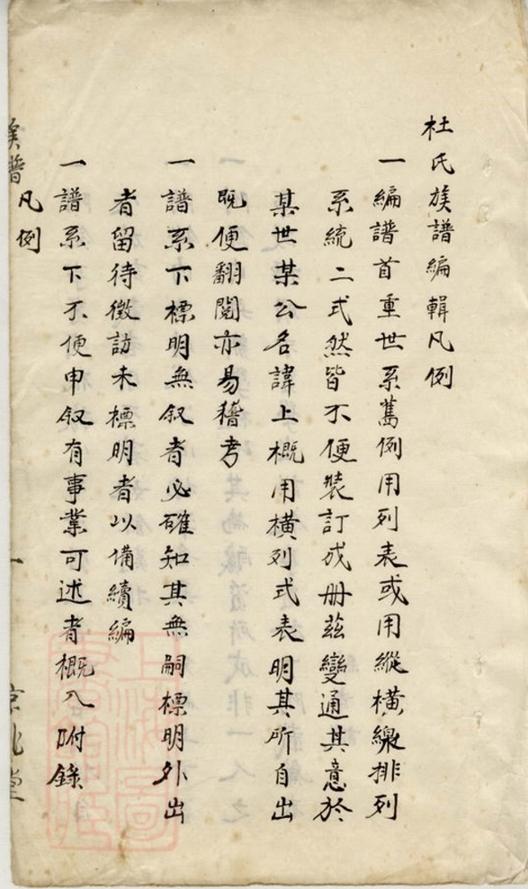 杜氏族譜編輯凡例
一編譜首重世系舊例用列表或用縱橫線排列
系統二式然皆不便裝訂成册茲變通其意於
某世某公名諱上概用橫列式表明其所自出
既便翻閱亦易稽考
一譜系下標明無叙者必確知其無嗣標明外出
者留待徵訪未標明者以備續編
一譜系下不便申叙有事業可述者概入附錄
族譜凡例 一 京兆堂